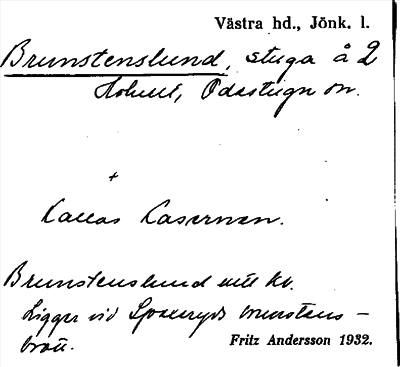 Västra hd., Jönk. l.
Brunstenslund, stuga å 2
Holmet, Ödestugu sn.
+
Kallas Kasernen.
Brunstenslund
Ligger vid brunstens-
brott.
Fritz Andersson 1932.